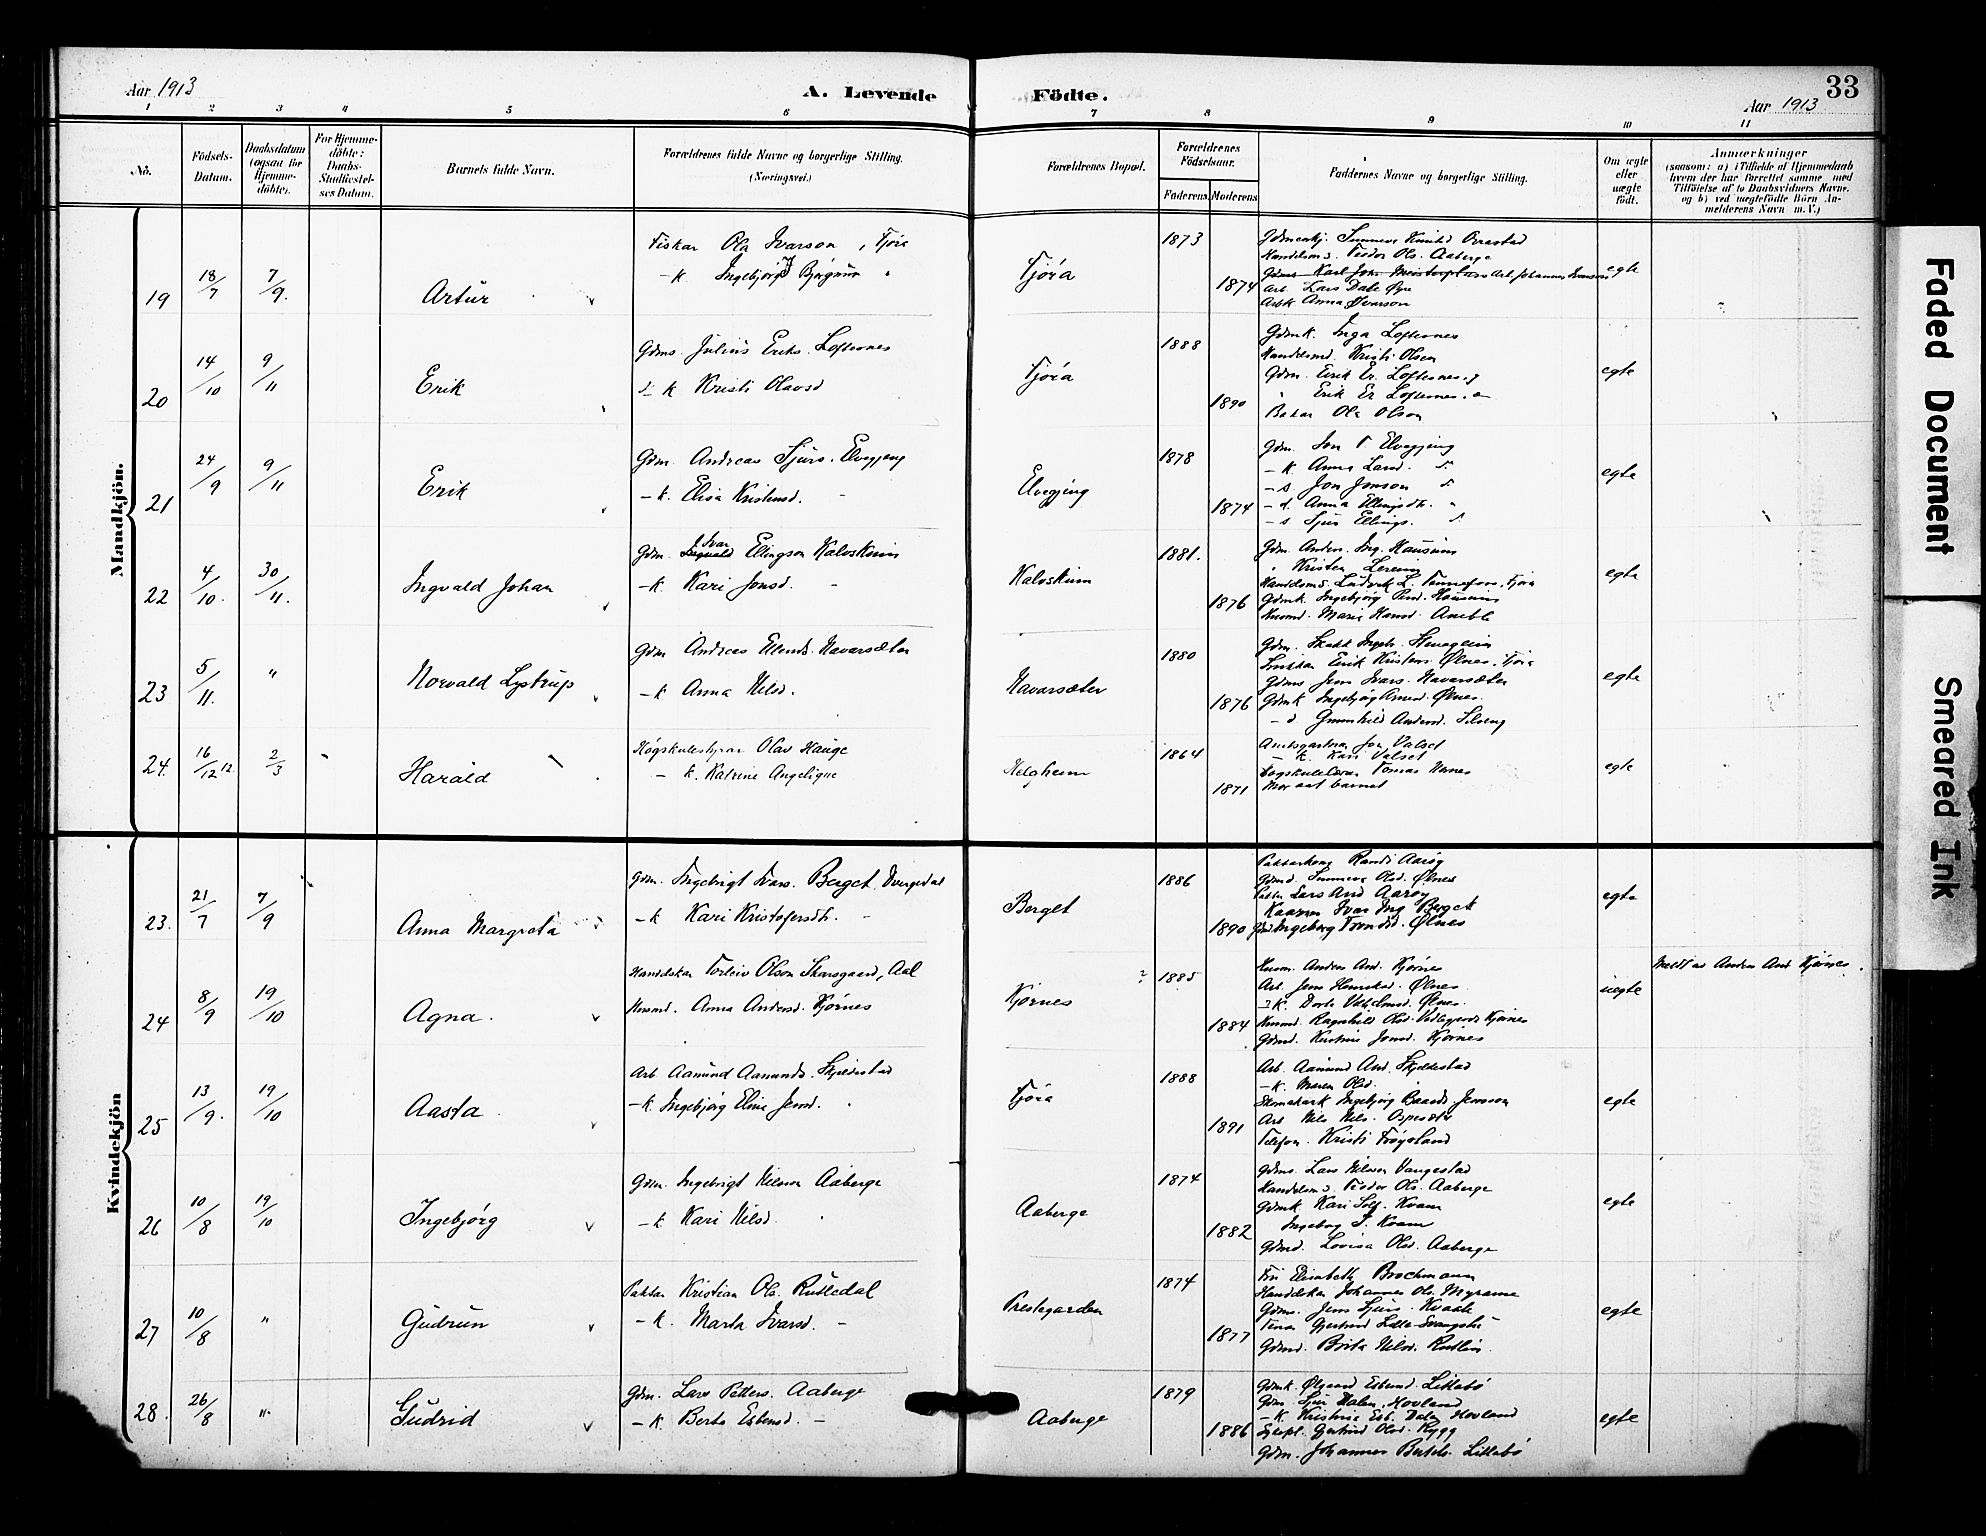 Aar 1913
A. Levende Födte.
33
Aar 1913
1 2 3 4 5 6 7 8 9 10 11
No.
Födsels-Datum.
Daabsdatum (ogsaa för Hjemme-döbte).
For Hjemme-döbte: Daabs-Stadfæstel-ses Datum.
Barnets fulde Navn.
Forældrenes fulde Navne og borgerlige Stilling. (Næringsvei.)
Forældrenes Bopæl.
Forældrenes Födselsaar.
Faderens. Moderens
Faddernes Navne og borgerlige Stilling.
Om ægte eller uægte födt.
Anmærkninger
(saasom: a) i Tilfælde af Hjemmedaab
hvem der har forrettet samme med
Tilföielse af to Daabsvidners Navne.
og b) ved uægtefödte Börn An-
melderens Navn m. V.)
Mandkjön.
19 18/7 7/9. Artur
Fiskar Ola Ivarson, Fjøra
-k. Ingebjørg Bjørgum "
Fjøra 1873 1874
Handelsm s. Teodor Ols. Aaberge
Arb. Lars Dale Øyri
Arbk Anna Ivarson
egte
20 14/10 9/11 Erik
Gdms. Julius Eriks. Loftesnes
d- k Kristi Olavsd
Fjøra 1888 1890
Gdmk. Inga Loftesnes
Handelsmd. Kristi Olsen
Gdm. Erik Er. Loftesnes. y
" Erik Er Loftesnes. e
Bakar Ola Olson
egte
21 24/9 9/11 Erik
Gdm. Andreas Sjurs. Elvegjeng
-k. Elisa Kristensd. -
Elvegjeng 1878 1874
Gdm. Jon T Elvegjeng
-k. Anna Larsd. d-
-s Jon Jonson d
-d. Anna Ellingsdtr. "
-s Sjur Ellings. d-
egte
22 4/10. 30/11. Ingvald Johan
Gdm. Ivar Ellingson Kalvskinn
-k. Kari Jonsd. -
Kalvskinn 1881. 1876
Gdm. Anders. Ing. Hausum
" Kristen Lerum
Handelsm s. Ludvik L. Fjøra
Gdmk. Ingebjørg Hausum
Husmd. Marie Hansd. Amble
egte
23 5/11. " Norvald Lystrup
Gdm Andreas Ellends. Navarsæter
-k. Anna Nilsd.
Navarsæter 1880 1876
Erik Kristens. Ølnes, Fjøra
Gdms Jens Ivars. Navarsæter
Gdmk Ingebjørg Ølnes.
-d Gunnhild Andersd. Selseng
egte
24. 16/12 12 2/3 Harald
Høgskulestyrar Olav Hauge
- k. Katrine Angelique
Helgheim 1864 1871
Amtsgartnar Jon Valset
-k. Kari Valset
Høgskulelærar Tomas Nernes
Mor aat barnet
egte
Kvindekjön
23. 21/7 7/9 Anna Margreta
Gdm. Ingebrigt Ivars. Berget, Dvergedal
-k Kari Kristofersdtr. -
Berget 1886 1890
Randi Aarøy
Gdmd. Sunneva Olsd. Ølnes
Lars And Aarøy
Ivar Ing Berget
Ingeborg Ølnes
egte
24 8/9 19/10 Agna.
Handelskar Torleiv Olson Skarsgaard, Aal
Husmd. Anna Andersd. Kjørnes
Kjørnes ? 1885 1884
Husm. Anders And. Kjørnes
Arb. Jens Henrikss. Ølnes
-k. Dorte Ølnes.
Husmd. Ragnhild Olsd. Kjørnes
Gdmd. Kristine Jonsd. Kjørnes
uegte
Meldt av Anders And Kjørnes.
25 13/9. 19/10 Aasta
Arb Aamund Aamunds. Skjeldestad
-k. Ingebjørg Eline Jensd. "
Fjøra 1888 1891
Arb. Aamund And. Skjeldestad
-k. Maren Olsd.
Skomakark Ingebjørg Jensson
Arb Nils Nils. Ospesæter
Telefon. Kristi Frøysland
egte
26 10/8 19/10 Ingebjørg
Gdm. Ingebrigt Nilsson Aaberge
-k Kari Nilsd. "
Aaberge 1874 1882
Gdms. Lars Nilsson Vangestad
Handelsm s. Teodor Ols. Aaberge
Gdmk Kari Kvam
Ingeborg S. Kvam
Gdmd. Lovisa Olsd. Aaberge
egte
27 10/8 " Gudrun
Paktar Kristian Ols. Rutledal
-k. Marta Ivarsd. -
Prestegarden 1874 1877
Fru Elisabeth Brochmann
Handelskar Johannes Ols. Myrane
Gdms. Jens Sjurs. Kvaale
Gjertrud
Gdmd. Brita Nilsd. Rutlin.
egte
28. 26/8 " Gudrid
Gdm. Lars Petters. Aaberge
-k. Berta Esbensd. -
Aaberge 1879 1886
Gdmk. Ølgaard Esbensd. Lillebø
Gdm. Sjur Dalen, Hovland
-k. Kristine Esb. Dalen Hovland
Gjertrud Olsd. Rygg
Gdm. Johannes Lillebø
egte
Faded Document
Smeared Ink